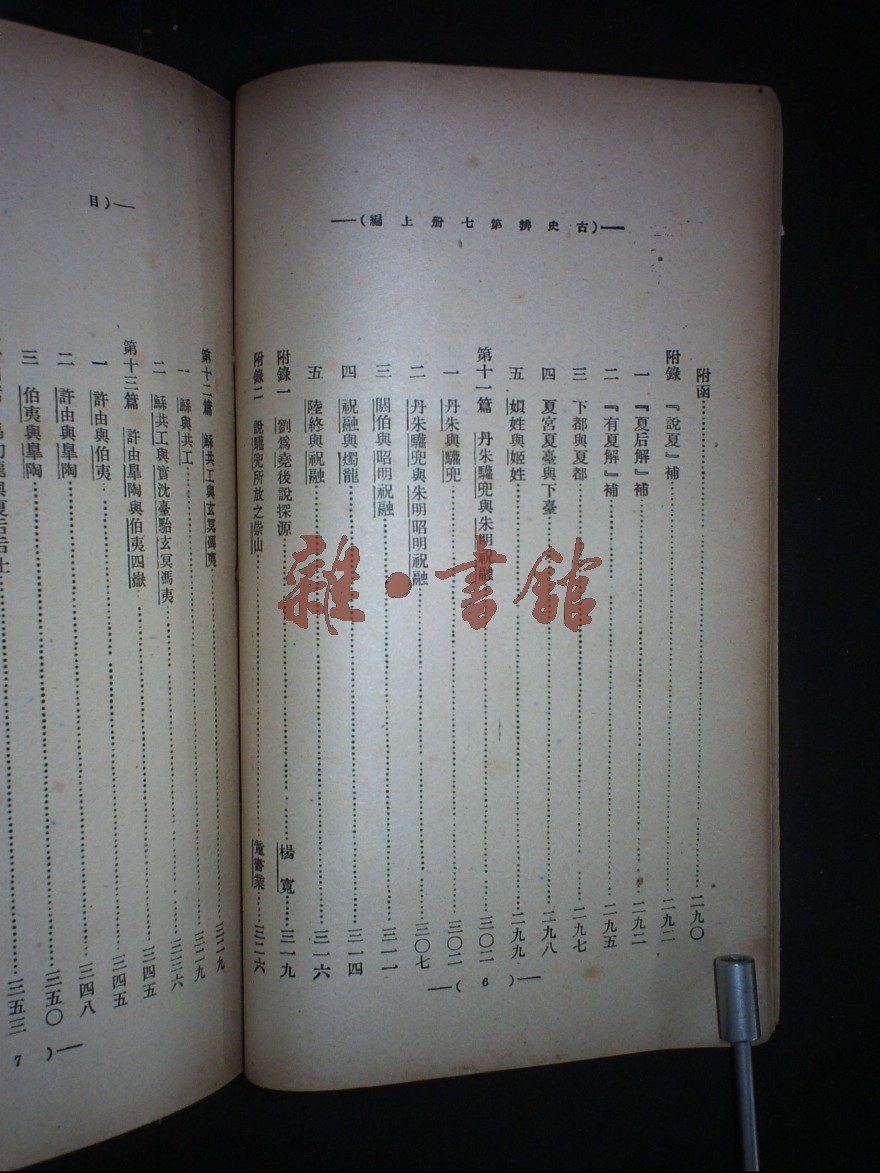 古史辨第七册上編
附函 二九〇
附錄 『說夏』補 二九二
一 『夏后解』補 二九二
二 『有夏解』補 二九五
三 下都與夏都 二九七
四 夏宮夏臺與下臺 二九八
五 嬀姓與姬姓 二九九
第十一篇 丹朱驩兜與朱明祝融 三〇二
一 丹朱與驩兜 三〇二
二 丹朱驩兜與朱明昭明祝融 三〇七
三 閼伯與昭明祝融 三一一
四 祝融與燭龍 三一四
五 陸終與祝融 三一六
附錄一 劉爲堯後說探源 楊寬 三一九
附錄二 說驩兜所放之崇山 童書業 三二六
6
目
第十二篇 鯀共工與玄冥馮夷 三二九
一 鯀與共工 三二九
二 鯀共工與實沈臺駘玄冥馮夷 三三六
第十三篇 許由臯陶與伯夷四嶽 三四五
一 許由與伯夷 三四五
二 許由與臯陶 三四八
三 伯夷與臯陶 三五〇
三五三
7
雜·書館